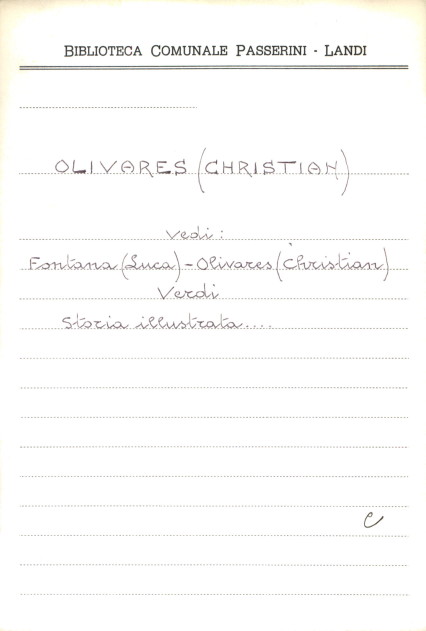 BIBLIOTECA COMUNALE PASSERINI - LANDI
OLIVARES (CHRISTIAN)
Vedi:
Fontana (Luca) - Olivares (Christian)
Verdi
Storia illustrata....
C